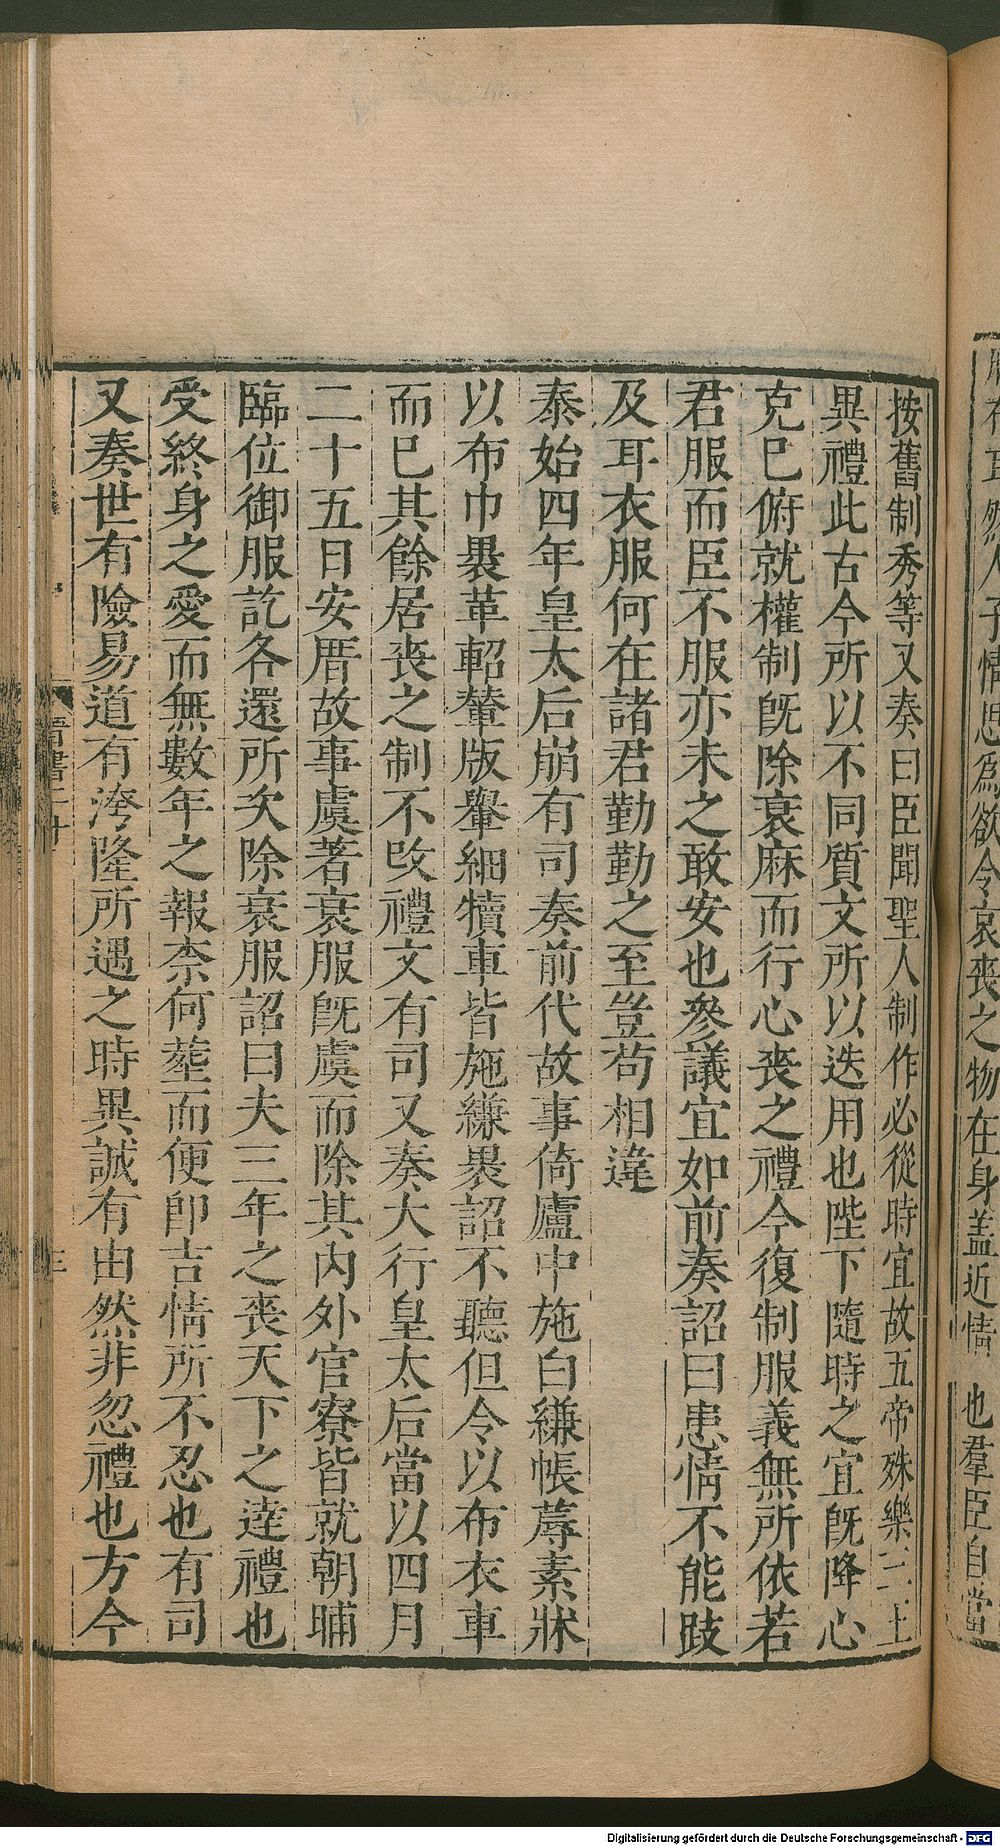 按舊制秀等又奏曰臣聞聖人制作必從時宜故五帝殊樂三王
異禮此古今所以不同質文所以迭用也陛下隨時之宜旣降心
克巳俯就權制旣除衰麻而行心喪之禮今復制服義無所依若
君服而臣不服亦未之敢安也參議宜如前奏詔曰患情不能跂
及耳衣服何在諸君勤勤之至豈苟相違
泰始四年皇太后崩有司奏前代故事倚廬中施白縑帳蓐素牀
以布巾裹革軺輦版轝細犢車皆施縑裹詔不聽但令以布衣車
而巳其餘居喪之制不改禮文有司又奏大行皇太后當以四月
二十五日安厝故事虞著衰服旣虞而除其內外官寮皆就朝晡
臨位御服訖各還所次除衰服詔曰夫三年之喪天下之達禮也
受終身之愛而無數年之報柰何葬而便卽吉情所不忍也有司
又奏世有險易道有洿隆所遇之時異誠有由然非忽禮也方今
晉書二十
三
在耳然人子情思爲欲令哀喪之物在身蓋近情
也羣臣自當
Digitalisierung gefördert durch die Deutsche Forschungsgemeinschaft - DFG